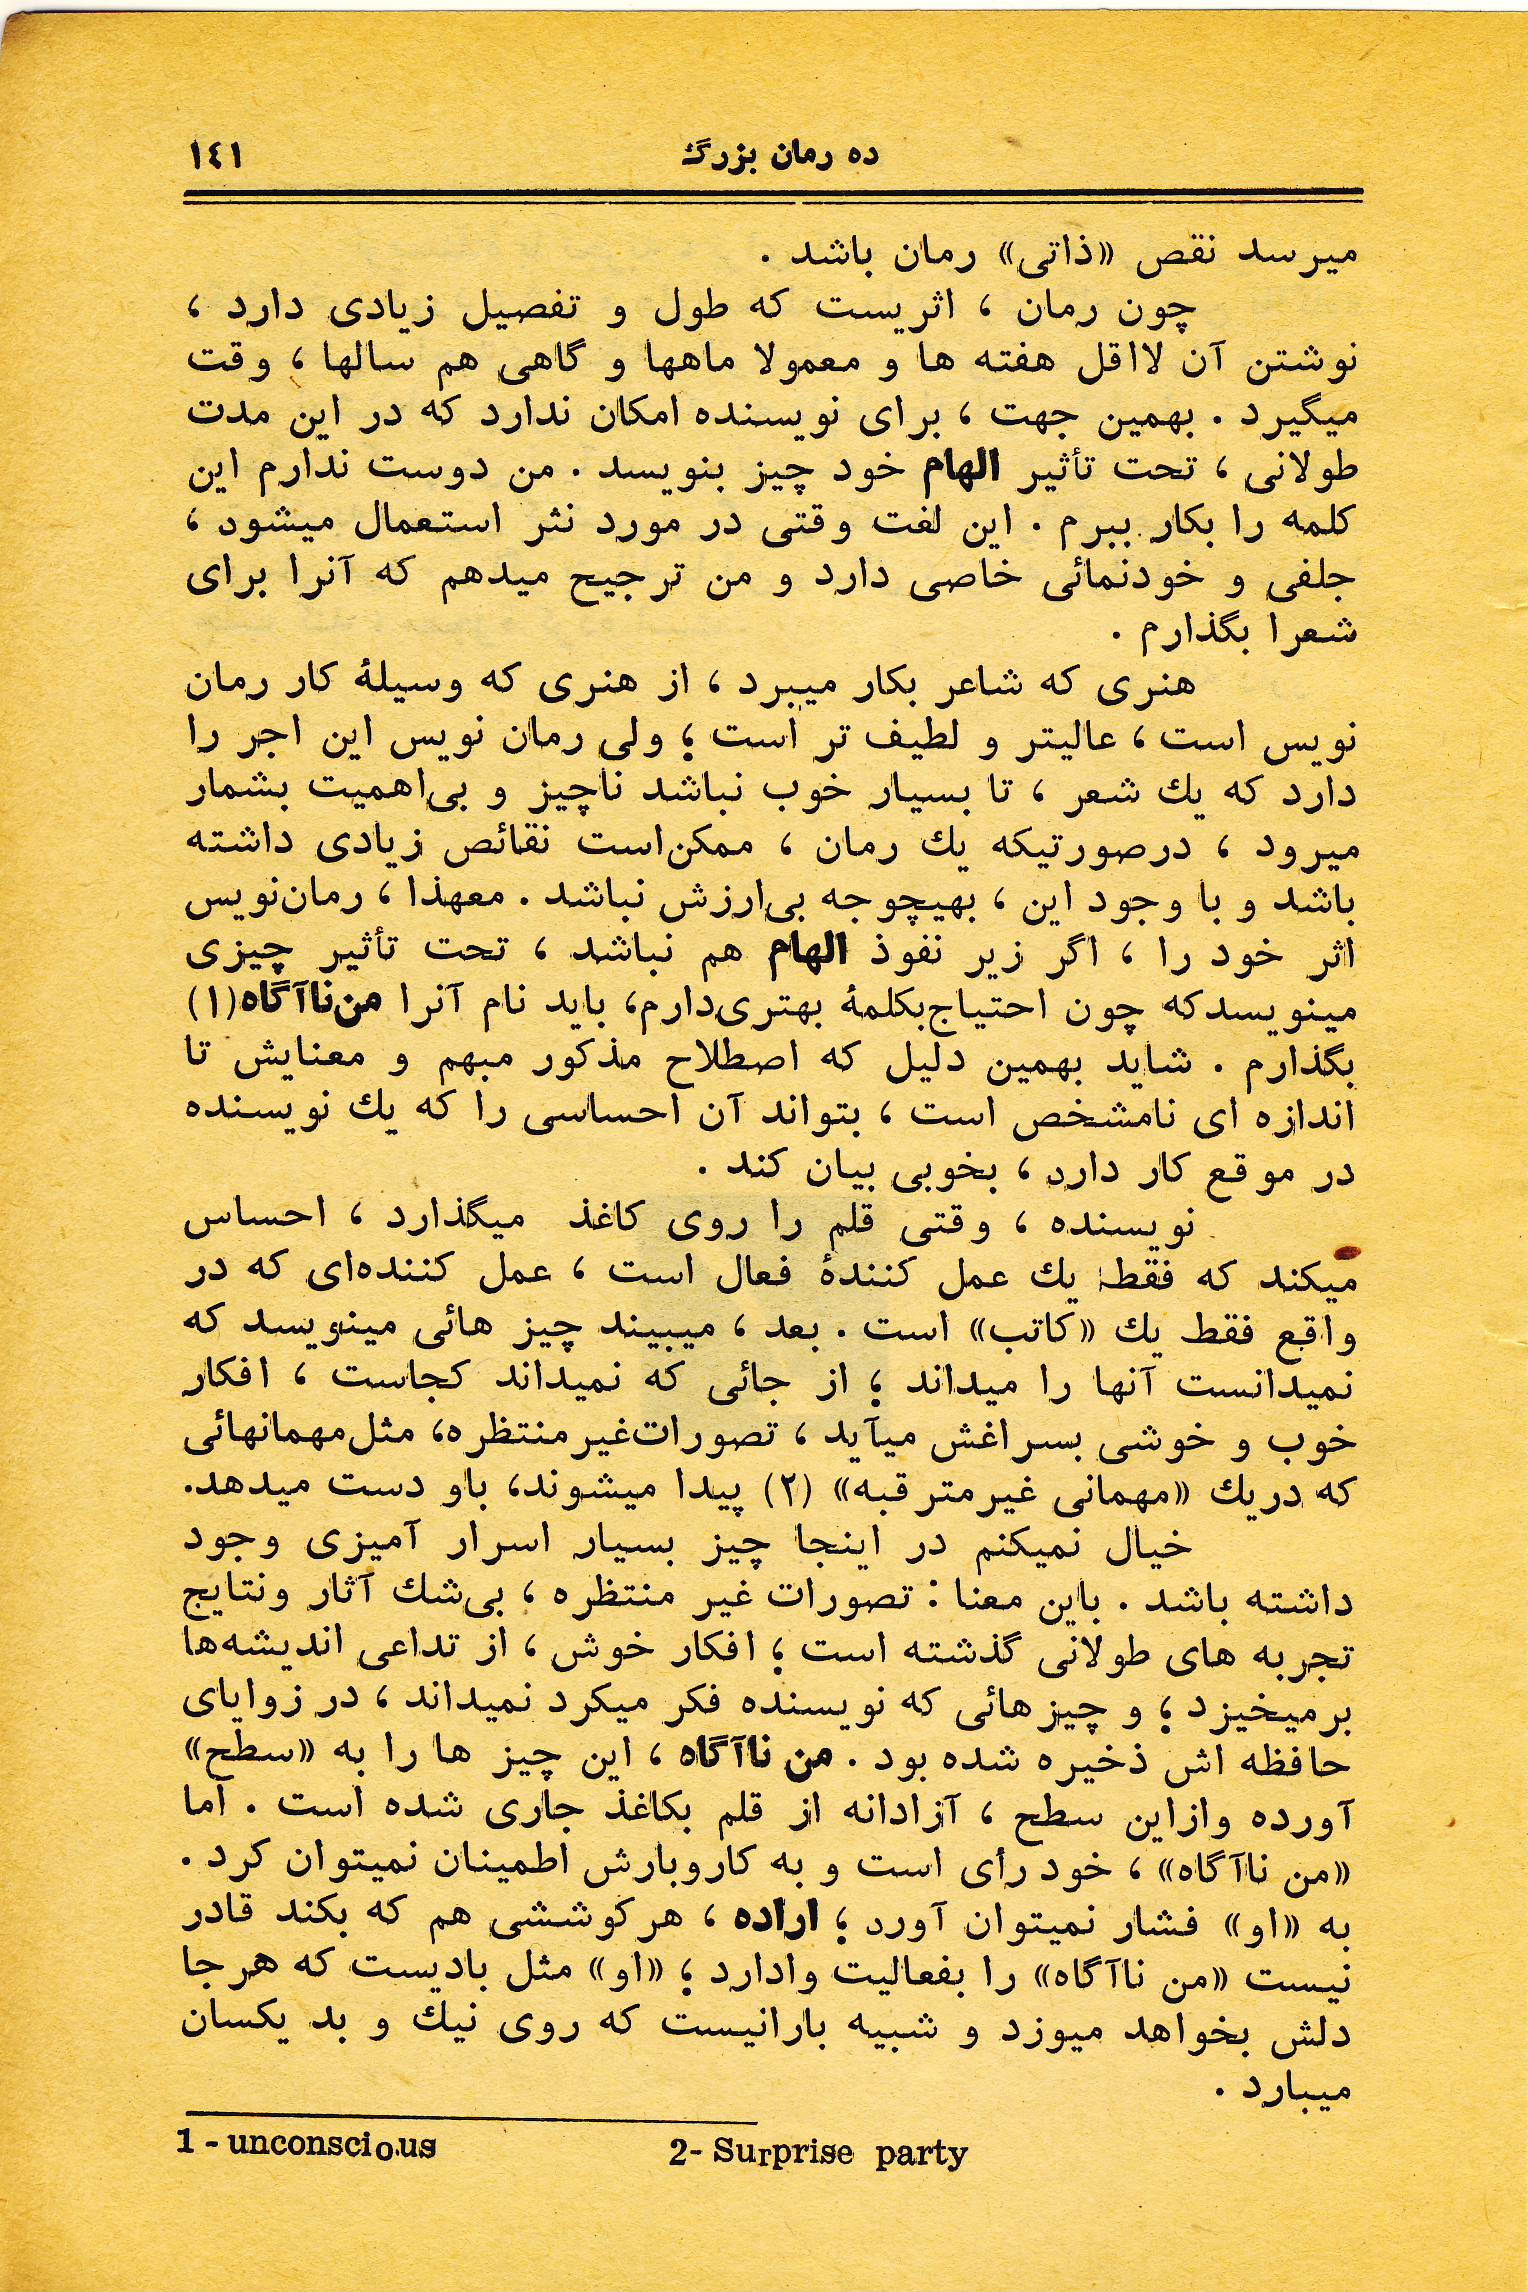 ده رمان بزرگ ۱٤۱
میرسد نقص «ذاتی» رمان باشد .
چون رمان ، اثریست که طول و تفصیل زیادی دارد ،
نوشتن آن لااقل هفته ها و معمولا ماهها و گاهی هم سالها ، وقت
میگیرد . بهمین جهت ، برای نویسنده امکان ندارد که در این مدت
طولانی ، تحت تأثیر الهام خود چیز بنویسد . من دوست ندارم این
کلمه را بکار ببرم . این لغت وقتی در مورد نثر استعمال میشود ،
جلفی و خودنمائی خاصی دارد و من ترجیح میدهم که آنرا برای
شعرا بگذارم .
هنری که شاعر بکار میبرد ، از هنری که وسیلهٔ کار رمان
نویس است ، عالیتر و لطیف تر است ؛ ولی رمان نویس این اجر را
دارد که یك شعر ، تا بسیار خوب نباشد ناچیز و بی‌اهمیت بشمار
میرود ، درصورتیکه یك رمان ، ممکن‌است نقائص زیادی داشته
باشد و با وجود این ، بهیچوجه بی‌ارزش نباشد . معهذا ، رمان‌نویس
اثر خود را ، اگر زیر نفوذ الهام هم نباشد ، تحت تأثیر چیزی
مینویسدکه چون احتیاج‌بکلمهٔ بهتری‌دارم، باید نام آنرا من‌ناآگاه(۱)
بگذارم . شاید بهمین دلیل که اصطلاح مذکور مبهم و معنایش تا
اندازه ای نامشخص است ، بتواند آن احساسی را که یك نویسنده
در موقع کار دارد ، بخوبی بیان کند .
نویسنده ، وقتی قلم را روی کاغذ میگذارد ، احساس
میکند که فقط یك عمل کنندهٔ فعال است ، عمل کننده‌ای که در
واقع فقط یك «کاتب» است . بعد ، میبیند چیز هائی مینویسد که
نمیدانست آنها را میداند ؛ از جائی که نمیداند کجاست ، افکار
خوب و خوشی بسراغش میآید ، تصورات‌غیرمنتظره، مثل‌مهمانهائی
که دریك «مهمانی غیرمترقبه» (۲) پیدا میشوند، باو دست میدهد.
خیال نمیکنم در اینجا چیز بسیار اسرار آمیزی وجود
داشته باشد . باین معنا : تصورات غیر منتظره ، بی‌شك آثار ونتایج
تجربه های طولانی گذشته است ؛ افکار خوش ، از تداعی اندیشه‌ها
برمیخیزد ؛ و چیزهائی که نویسنده فکر میکرد نمیداند ، در زوایای
حافظه اش ذخیره شده بود . من ناآگاه ، این چیز ها را به «سطح»
آورده وازاین سطح ، آزادانه از قلم بکاغذ جاری شده است . اما
«من ناآگاه» ، خودرأی است و به کاروبارش اطمینان نمیتوان کرد .
به «او» فشار نمیتوان آورد ؛ اراده ، هرکوششی هم که بکند قادر
نیست «من ناآگاه» را بفعالیت وادارد ؛ «او» مثل بادیست که هرجا
دلش بخواهد میوزد و شبیه بارانیست که روی نیك و بد یکسان
میبارد .
1 - unconscious 2- Surprise party